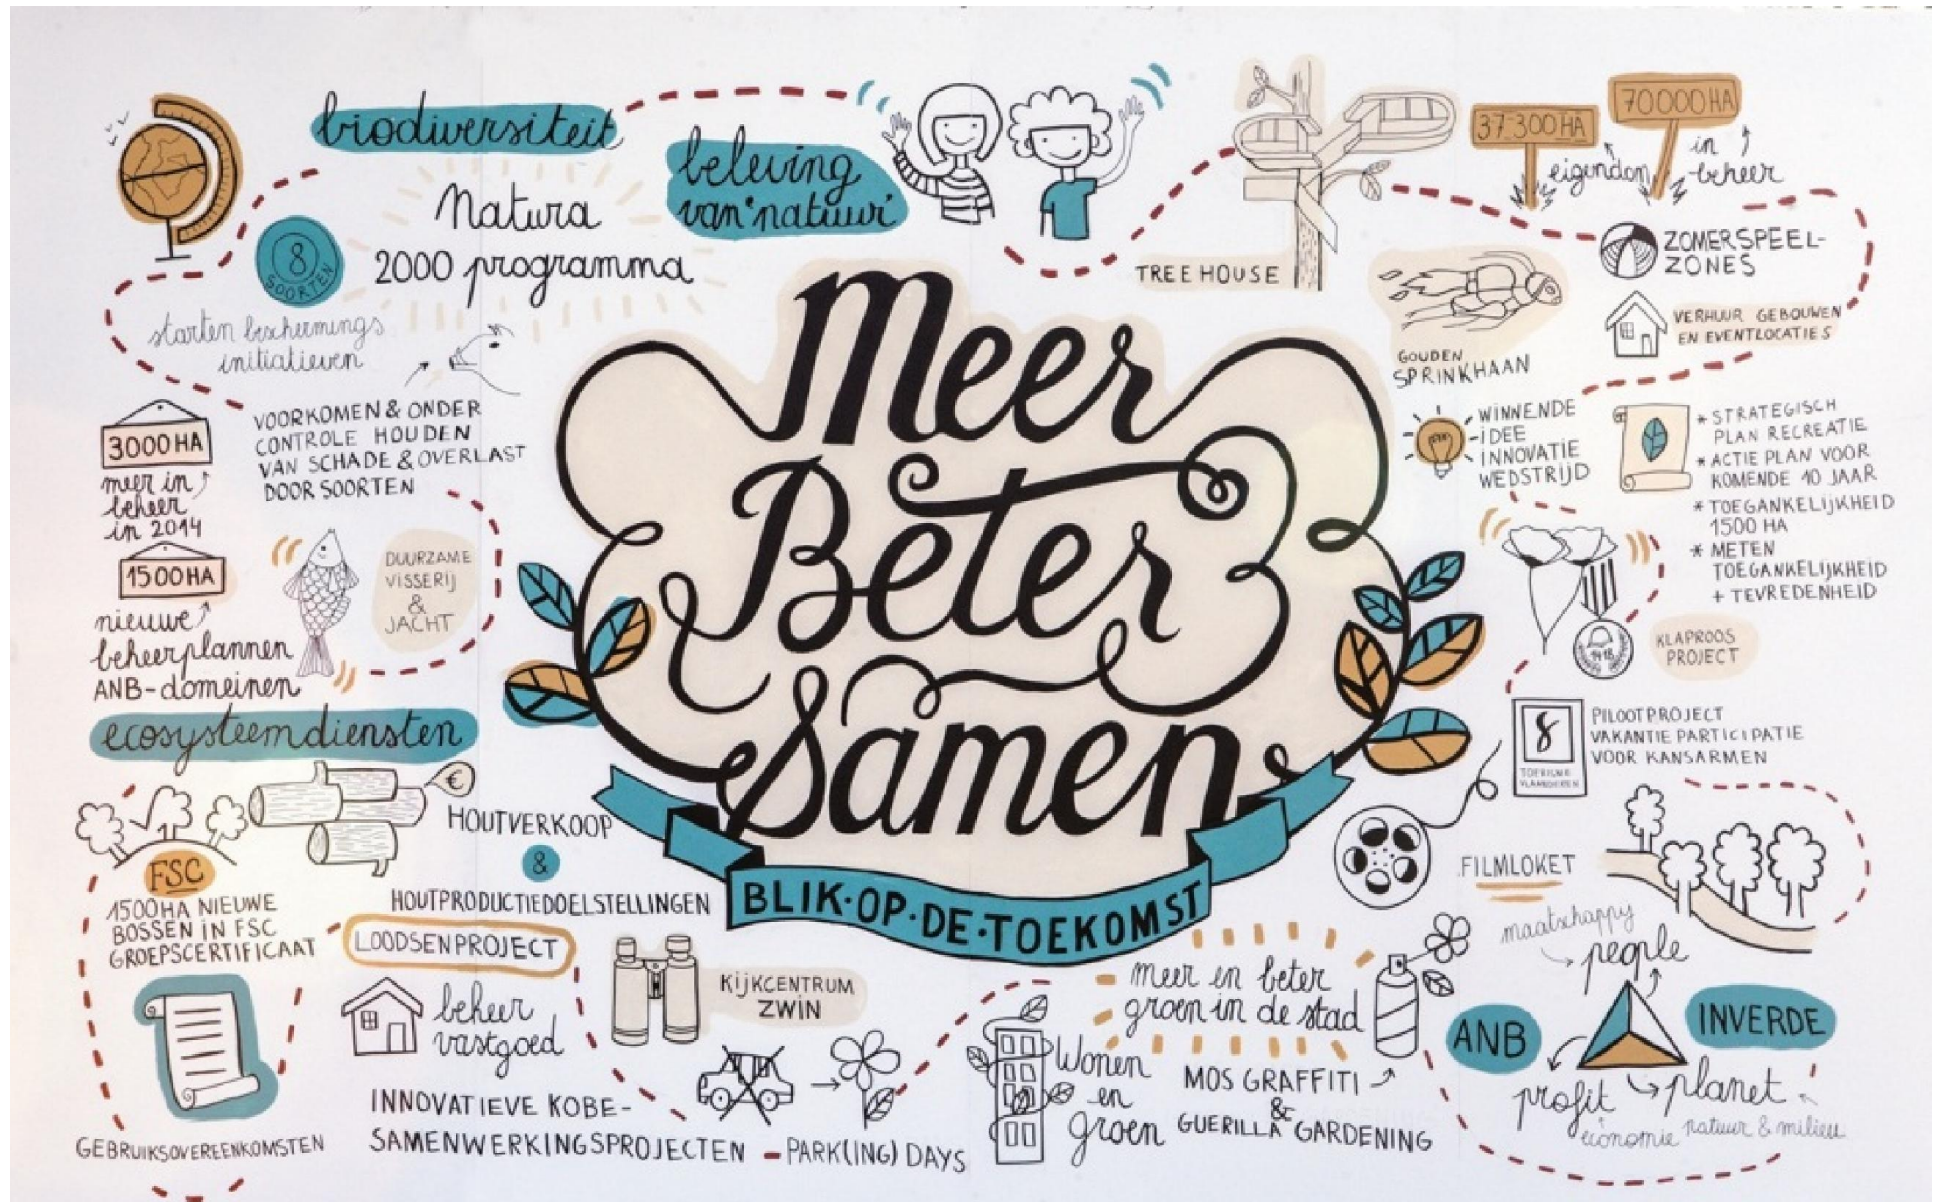 biodiversiteit
Natura
2000 programma
8
SOORTEN
starten beschermings
initiatieven
VOORKOMEN & ONDER
CONTROLE HOUDEN
VAN SCHADE & OVERLAST
DOOR SOORTEN
3000 HA
meer in
beheer
in 2014
1500 HA
nieuwe
beheerplannen
ANB-domeinen
DUURZAME
VISSERIJ
&
JACHT
ecosysteemdiensten
€
HOUTVERKOOP
&
HOUTPRODUCTIEDOELSTELLINGEN
FSC
1500HA NIEUWE
BOSSEN IN FSC
GROEPSCERTIFICAAT
LOODSENPROJECT
beheer
vastgoed
GEBRUIKSOVEREENKOMSTEN
INNOVATIEVE KOBE-
SAMENWERKINGSPROJECTEN
KIJKCENTRUM
ZWIN
PARK(ING) DAYS
beleving
van 'natuur'
Meer
Beter
Samen
BLIK·OP·DE·TOEKOMST
TREE HOUSE
37 300 HA
eigendom
70000 HA
in
beheer
ZOMERSPEEL-
ZONES
VERHUUR GEBOUWEN
EN EVENTLOCATIES
GOUDEN
SPRINKHAAN
WINNENDE
IDEE
INNOVATIE
WEDSTRIJD
* STRATEGISCH
PLAN RECREATIE
* ACTIE PLAN VOOR
KOMENDE 10 JAAR
* TOEGANKELIJKHEID
1500 HA
* METEN
TOEGANKELIJKHEID
+ TEVREDENHEID
KLAPROOS
PROJECT
8
TOERISME
VLAANDEREN
PILOOTPROJECT
VAKANTIE PARTICIPATIE
VOOR KANSARMEN
FILMLOKET
meer en beter
groen in de stad
Wonen
en
groen
MOS GRAFFITI
&
GUERILLA GARDENING
maatschappy
people
ANB
INVERDE
profit
economie
planet
natuur & milieu